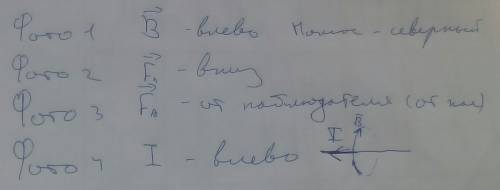 Фото 1 B⃗ - влево Полюс - северный
Фото 2 F⃗л - вниз
Фото 3 F⃗A - от наблюдателя (от нас)
Фото 4 I - влево I B⃗